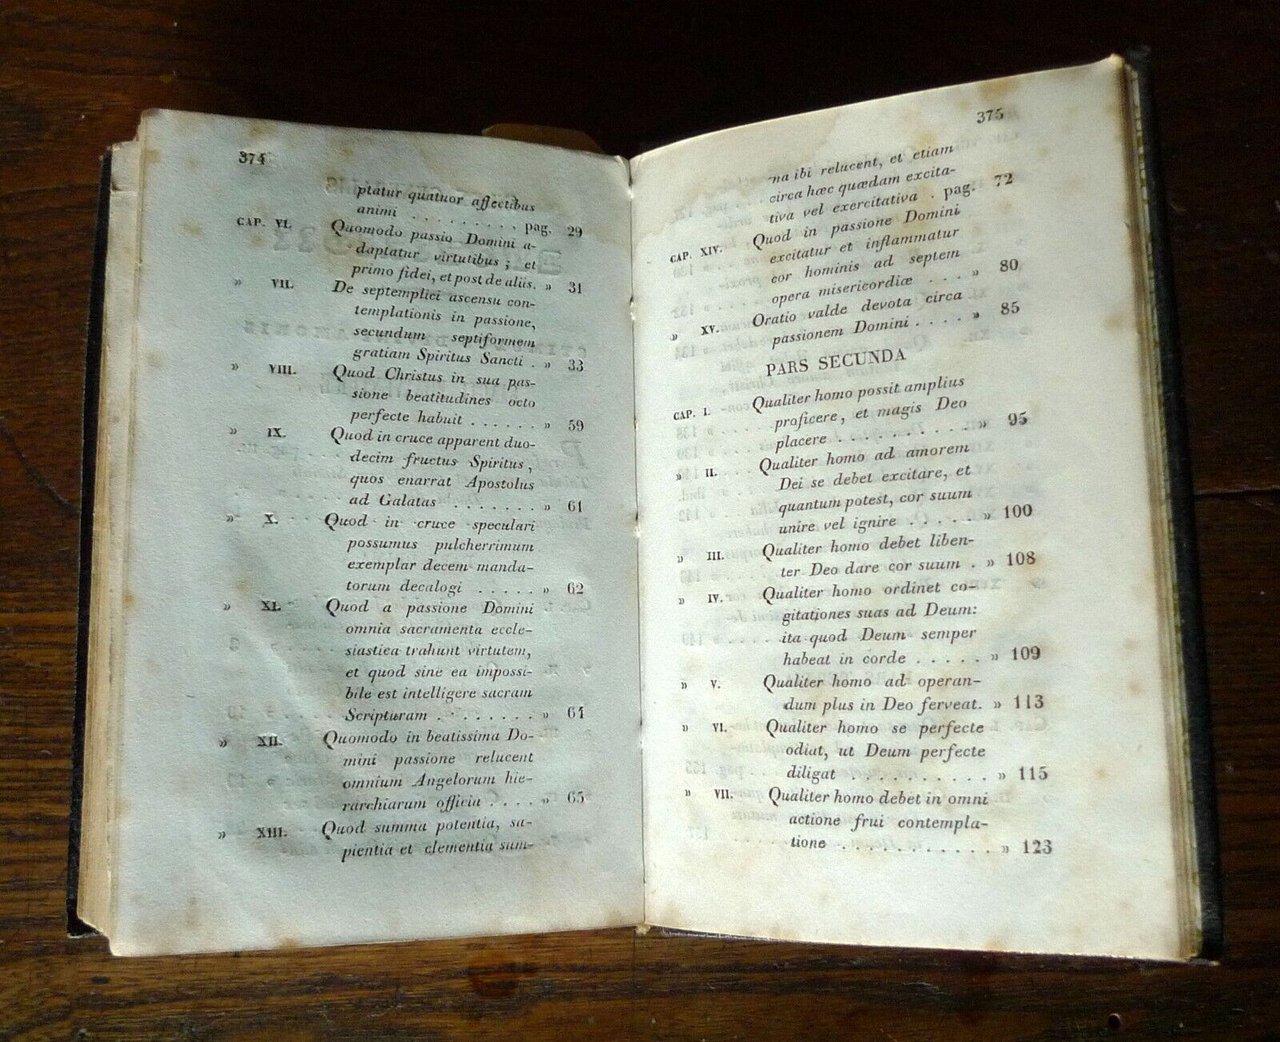 374
ptatur quatuor affectibus
animi . . . . . . . . . pag. 29
CAP. VI. Quomodo passio Domini a-
daptatur virtutibus ; et
primo fidei, et post de aliis. » 31
» VII. De septemplici ascensu con-
templationis in passione,
secundum septiformem
gratiam Spiritus Sancti . » 33
» VIII. Quod Christus in sua pas-
sione beatitudines octo
perfecte habuit . . . . . . » 59
» IX. Quod in cruce apparent duo-
decim fructus Spiritus,
quos enarrat Apostolus
ad Galatas . . . . . . . » 61
» X. Quod in cruce speculari
possumus pulcherrimum
exemplar decem manda-
torum decalogi . . . . . » 62
» XI. Quod a passione Domini
omnia sacramenta eccle-
siastica trahunt virtutem,
et quod sine ea impossi-
bile est intelligere sacram
Scripturam . . . . . . . . » 64
» XII. Quomodo in beatissima Do-
mini passione relucent
omnium Angelorum hie-
rarchiarum officia . . . . » 65
» XIII. Quod summa potentia, sa-
pientia et clementia sum-
375
ma ibi relucent, et etiam
circa hæc quædam excita-
tiva vel exercitativa . pag. 72
CAP. XIV. Quod in passione Domini
excitatur et inflammatur
cor hominis ad septem
opera misericordiæ . . . » 80
» XV. Oratio valde devota circa
passionem Domini . . . . » 85
PARS SECUNDA
CAP. I. Qualiter homo possit amplius
proficere, et magis Deo
placere . . . . . . . . . . » 95
» II. Qualiter homo ad amorem
Dei se debet excitare, et
quantum potest, cor suum
unire vel ignire . . . . . » 100
» III. Qualiter homo debet liben-
ter Deo dare cor suum . » 108
» IV. Qualiter homo ordinet co-
gitationes suas ad Deum:
ita quod Deum semper
habeat in corde . . . . . » 109
» V. Qualiter homo ad operan-
dum plus in Deo ferveat. » 113
» VI. Qualiter homo se perfecte
odiat, ut Deum perfecte
diligat . . . . . . . . . » 115
» VII. Qualiter homo debet in omni
actione frui contempla-
tione . . . . . . . . . . . » 123